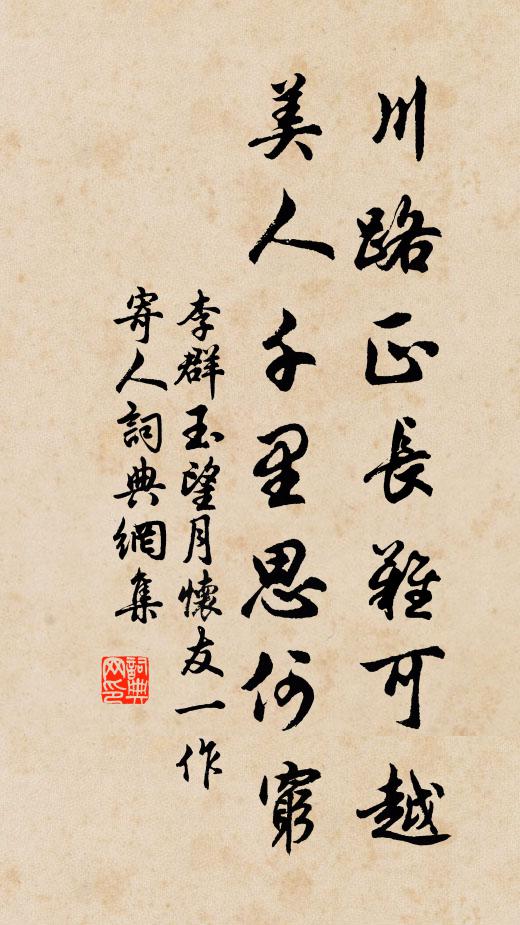 川路正長難可越
美人千里思何窮
李群玉望月懷友一作
寄人詞典網集
詞典网印